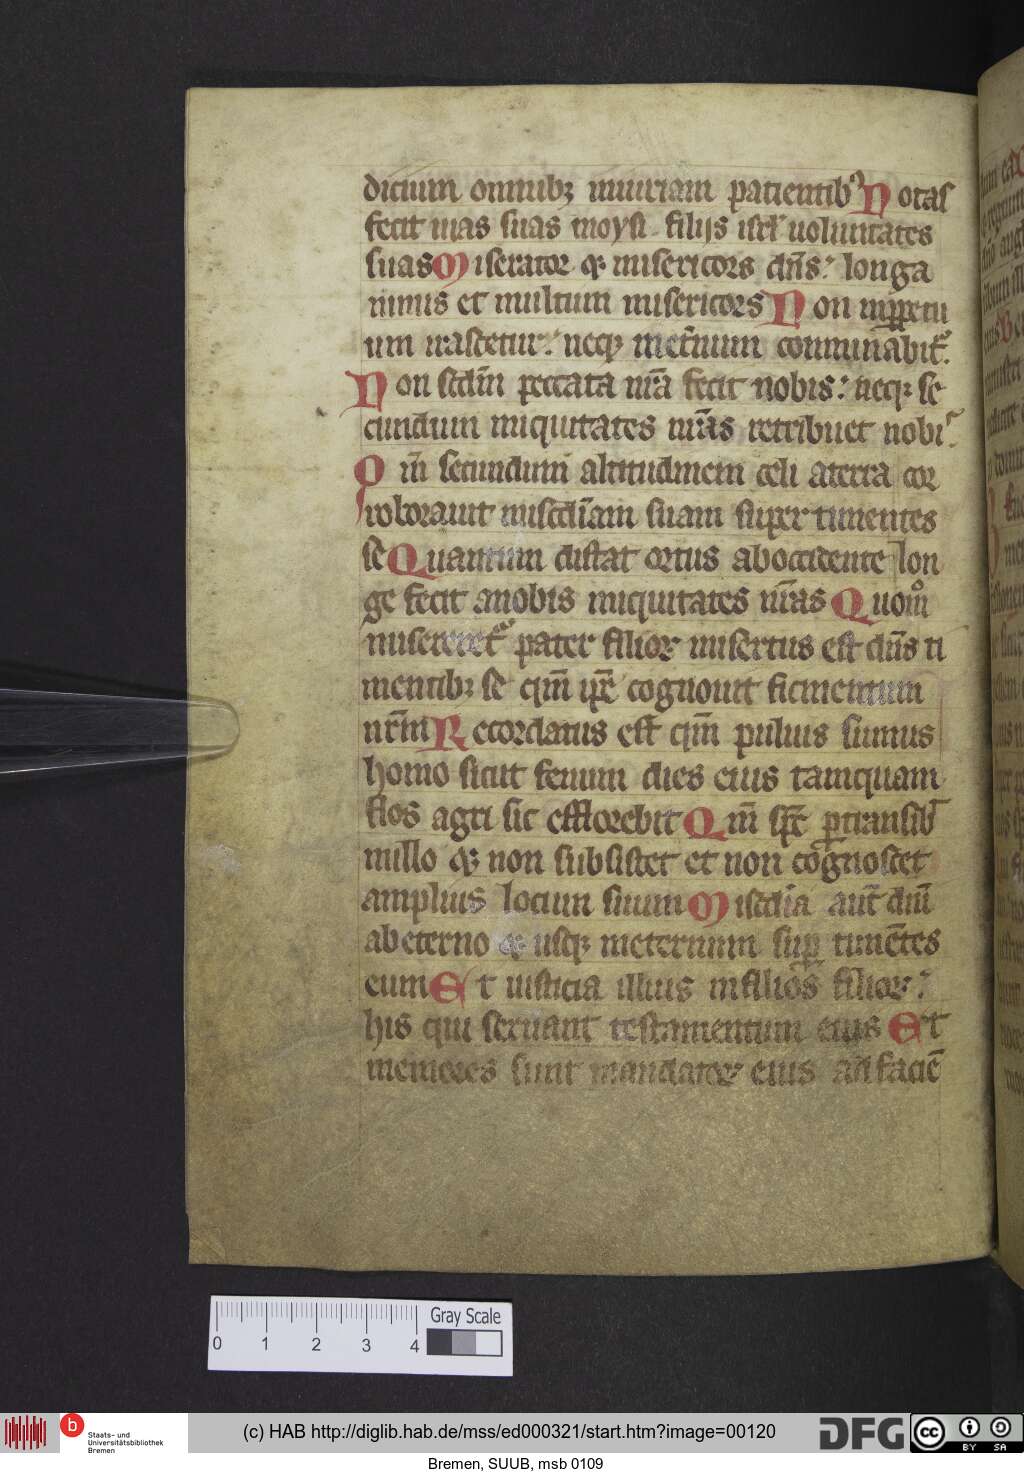 dicium omnibꝫ iniuriam patientibꝰ Notas
fecit uias suas moysi filijs isrl' uoluntates
suas Miserator ⁊ misericors dn̄s: longa
nimus et multum misericors Non inꝑpetu
um irascetur: neqꝫ inet̄num cōminabit᷑.
Non scd̄m peccata nr̄a fecit nobis: neqꝫ se
cundum iniquitates nr̄as retribuet nobis.
Qm̄ secundum altitudinem celi aterra cor
roborauit miscd̄iam suam super timentes
se Quantum distat ortus aboccidente lon
ge fecit anobis iniquitates nr̄as Quom̊
miseretet᷑ pater filioꝝ misertus est dn̄s ti
mentibꝫ se qm̄ ip̄e cognouit figmentum
nr̄m Recordatus est qm̄ puluis sumus
homo sicut fenum dies eius tamquam
flos agri sic efflorebit Qm̄ sp̄c ꝑtransib̄
in illo ⁊ non subsistet et non cōgnoscet
amplius locum suum Miscd̄ia aut̄ dn̄i
abeterno ⁊ usqꝫ ineternum suꝑ timētes
eum Et iusticia illius infilios filioꝝ:
his qui seruant testamentum eius Et
memores sunt mandatoꝝ eius ad faciē
0 1 2 3 4 Gray Scale
b Staats- und Universitätsbibliothek Bremen
(c) HAB http://diglib.hab.de/mss/ed000321/start.htm?image=00120
DFG
cc BY SA
Bremen, SUUB, msb 0109